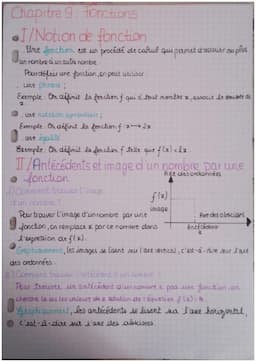 Chapitre 9 : Fonctions
I/Notion de fonction
Une fonction est un procédé de calcul qui permet d'associer
un nombre à un autre nombre.
Pour définir une fonction, on peut utiliser
une phrase ;
Exemple : On définit la fonction f qui à tout nombre x, associe le double de
x.
une notation symbolique ;
Exemple : On définit la fonction f : x ↦ 2x
une égalité
Exemple : On définit la fonction f telle que f(x) = 2x
II/Antécédents et image d'un nombre par une
fonction
Axe des ordonnées
1) Comment trouver l'image
d'un nombre ?
f(x)
image
Pour trouver l'image d'un nombre par une
fonction, on remplace x par ce nombre dans
l'expression de f(x).
Axe des abscisses
x
antécédent
Graphiquement, les images se lisent sur l'axe vertical, c'est-à-dire sur l'axe
des ordonnées.
2) Comment trouver l'antécédent d'un nombre ?
Pour trouver un antécédent d'un nombre k par une fonction, on
cherche la ou les valeurs de x solution de l'équation f(x) = k.
Graphiquement, les antécédents se lisent sur l'axe horizontal,
c'est-à-dire sur l'axe des abscisses.